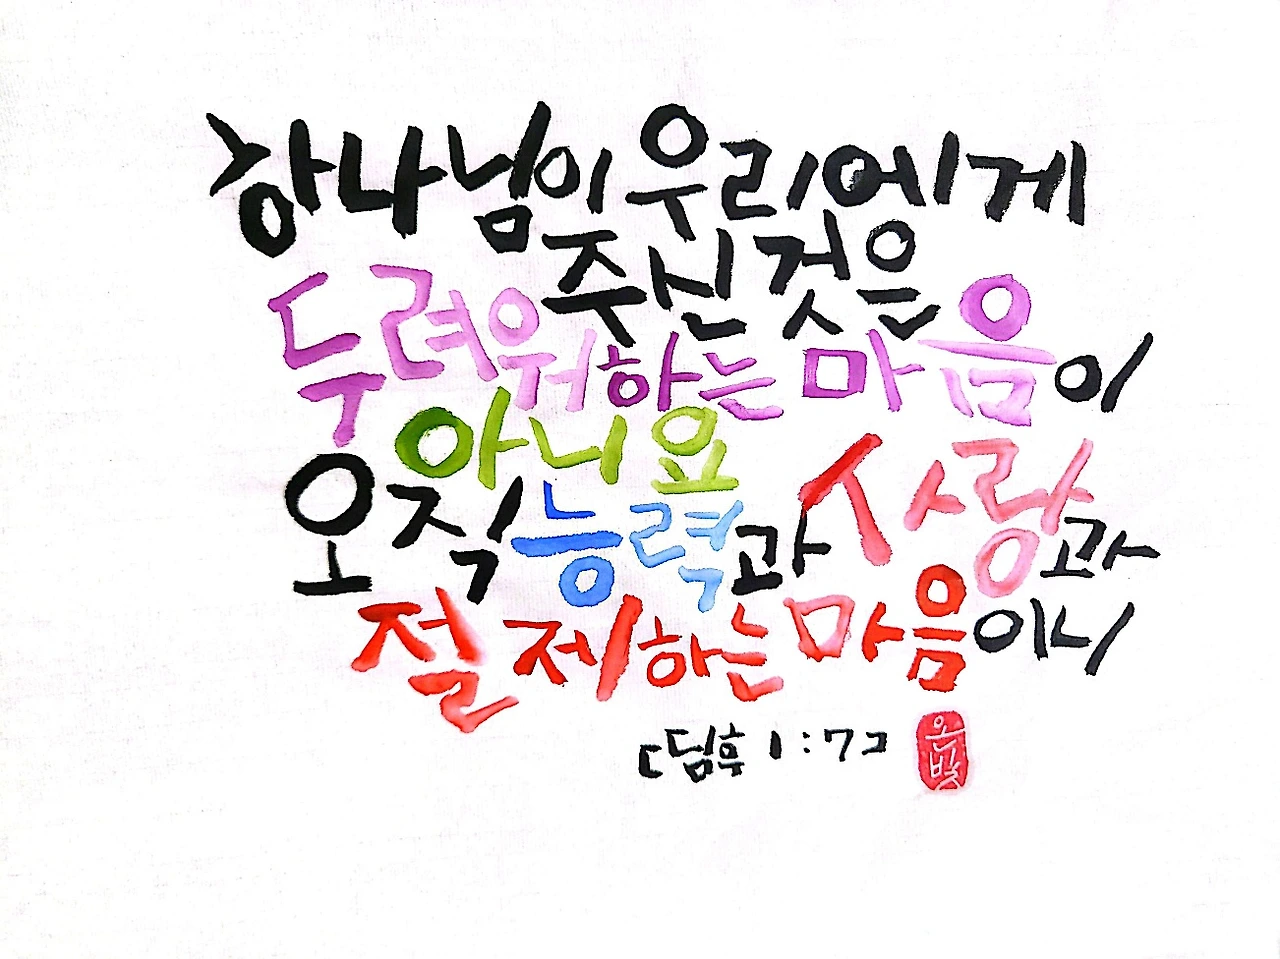 하나님이 우리에게
주신 것은
두려워하는 마음이
아니요
오직 능력과 사랑과
절제하는 마음이니
[딤후 1:7]